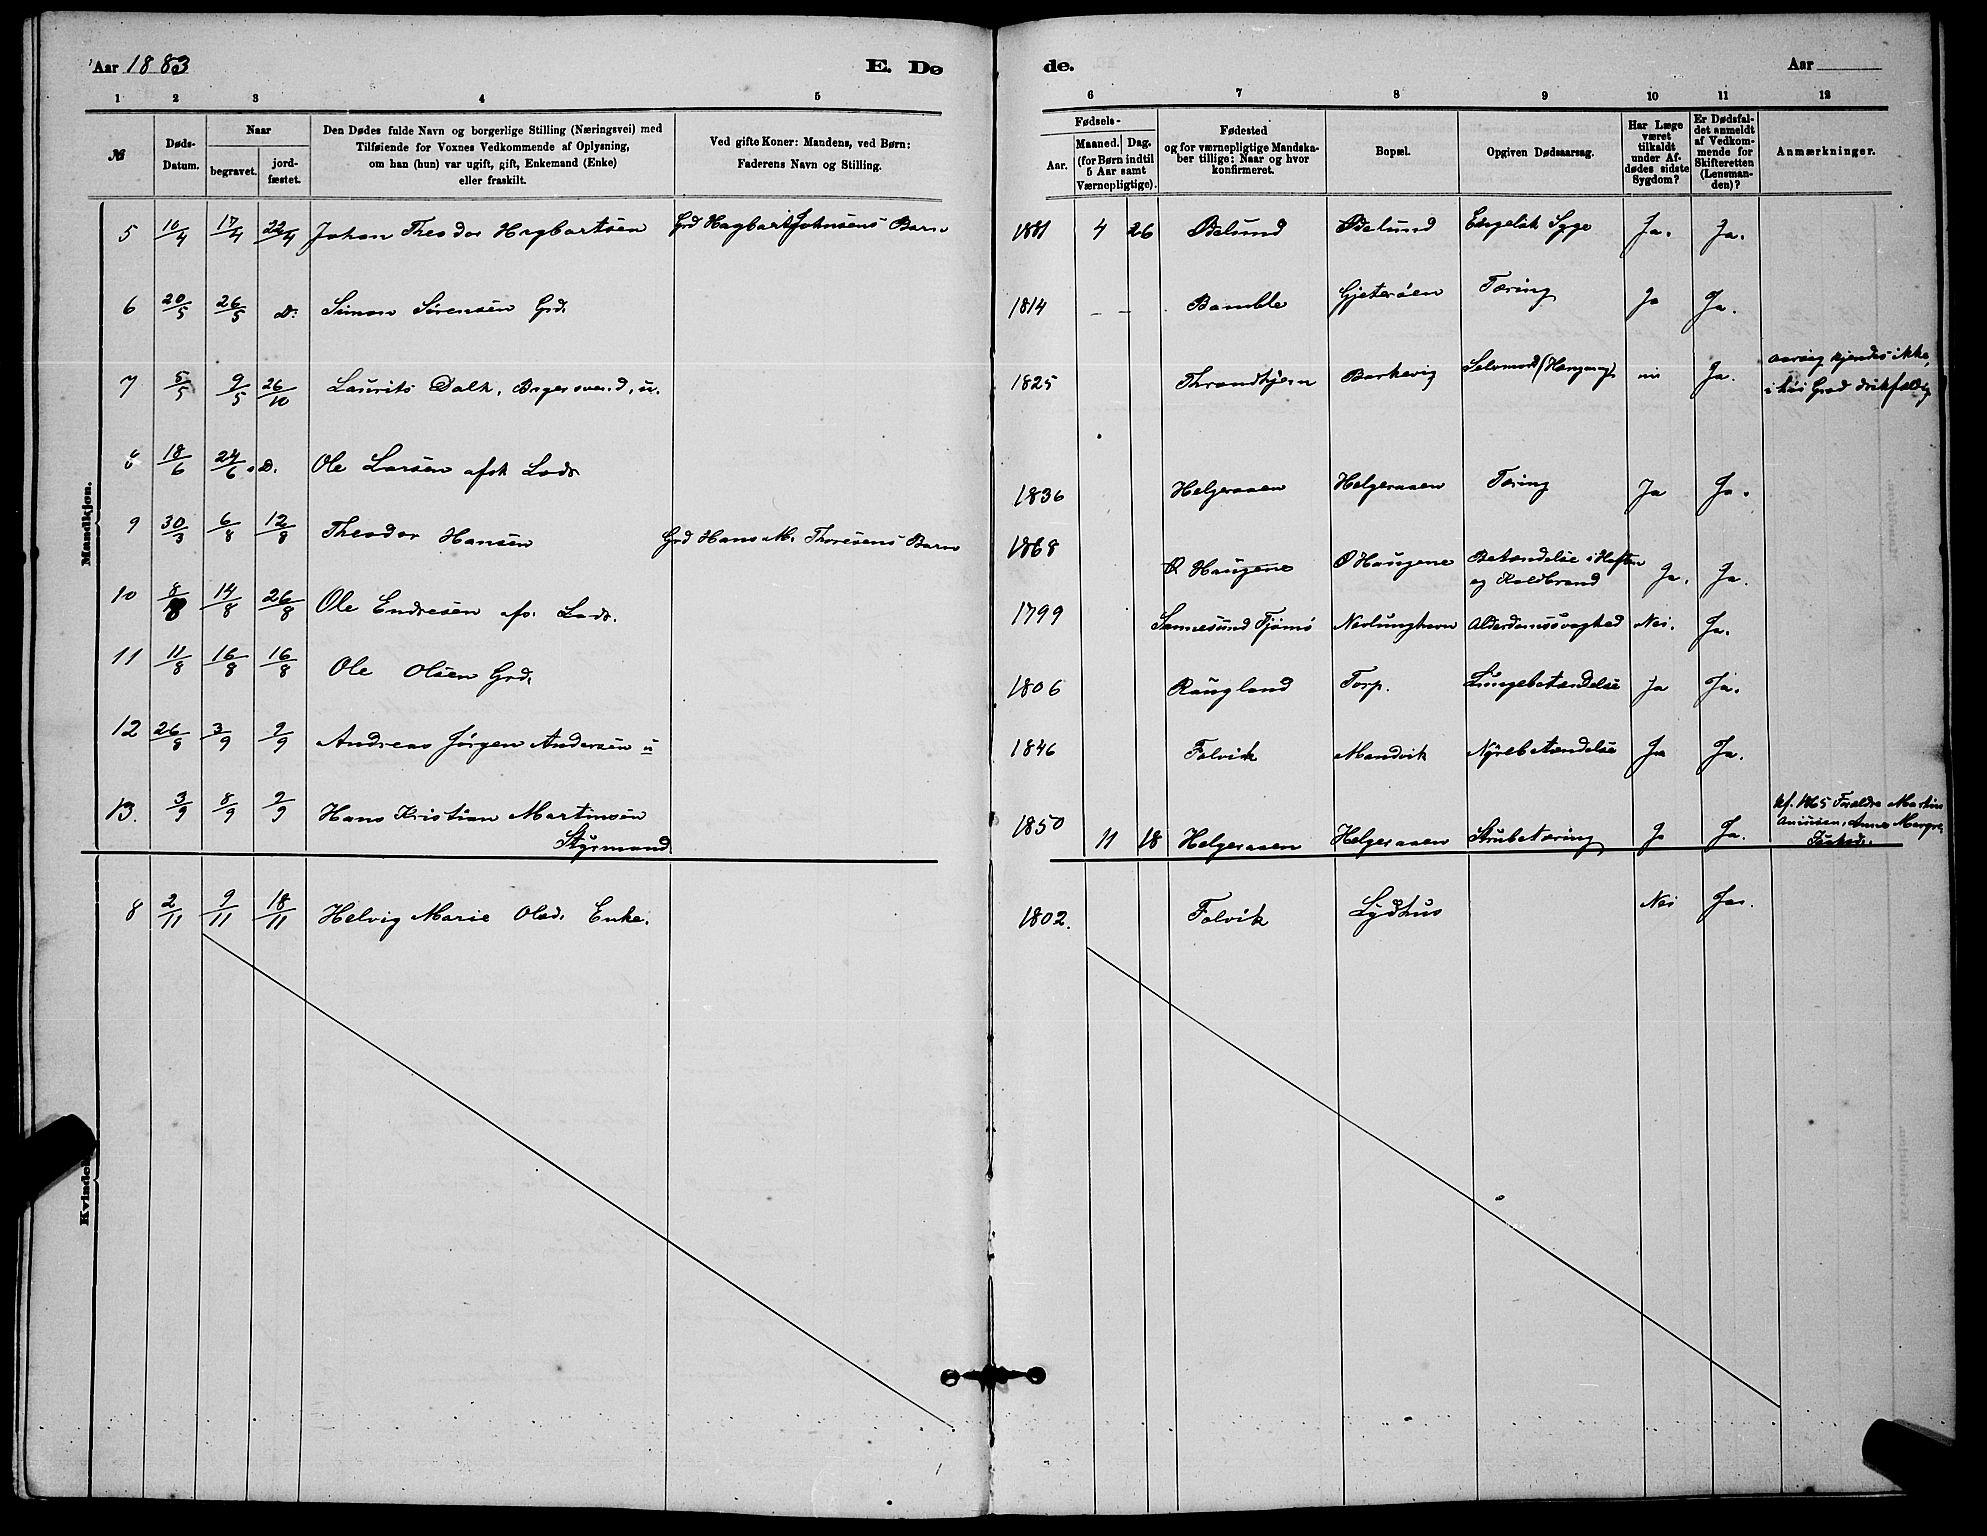 Aar 1883 E. Dø de. Aar
1 2 3 4 5 6 7 8 9 10 11 12
№
Døds-Datum.
Naar
begravet.
jord-fæstet.
Den Dødes fulde Navn og borgerlige Stilling (Næringsvei) med
Tilføiende for Voxnes Vedkommende af Oplysning,
om han (hun) var ugift, gift, Enkemand (Enke)
eller fraskilt.
Ved gifte Koner: Mandens, ved Børn:
Faderens Navn og Stilling.
Fødsels-
Aar.
Maaned. Dag.
(for Børn indtil
5 Aar samt
Værnepligtige).
Fødested
og for værnepligtige Mandska-
ber tillige: Naar og hvor
konfirmeret.
Bopæl.
Opgiven Dødsaarsag.
Har Læge
været
tilkaldt
under Af-
dødes sidste
Sygdom?
Er Dødsfal-
det anmeldt
af Vedkom-
mende for
Skifteretten
(Lensman-
den)?
Anmærkninger.
Mandkjøn.
5 10/4 17/4 22/4 Johan Theodor Hagbartsen Grd Hagbart Johnsens Barn 1881 4 26 Ødelund Ødelund Engelsk Syge Ja. Ja.
6 20/5 26/5 D. Simon Sørensen Grd. 1814 – – Bamble Gjeterøen Tæring Ja Ja.
7 5/5 9/5 26/10 Laurits Dalk, Bagersvend, u. 1825 Throndhjem Barkevig Selvmord (Hængning) nei Ja. Aarsag kjendes ikke,
i høi Grad drikfældig
8 18/6 24/6 D. Ole Larsen afsk Lods 1836 Helgeraaen Helgeraaen Tæring Ja Ja.
9 30/3 6/8 12/8 Theodor Hansen Grd Hans M. Thoresens Barn 1868 Ø Haugene Ø Haugene Betændelse i Hoften
og Koldbrand Ja. Ja.
10 8/8 14/8 26/8 Ole Endresen afs. Lods. 1799 Sannesund Tjømø Nevlunghavn Alderdomssvaghed Nei. Ja.
11 11/8 16/8 16/8 Ole Olsen Grd. 1806 Raugland Torp. Lungebetændelse Ja Ja.
12 26/8 3/9 9/9 Andreas Jørgen Andersen u 1846 Folvik Mandvik Nyrebetændelse Ja Ja.
13. 3/9 8/9 9/9 Hans Kristian Martinsen
Styrmand 1850 11 18 Helgeraaen Helgeraaen Strubetæring Ja Ja. kf. 1865 Forældre Martin
Anna Margr.
Kvindekj
8 2/11 9/11 18/11 Helvig Marie Olsd. Enke. 1802. Folvik Lydhus Nei Ja.